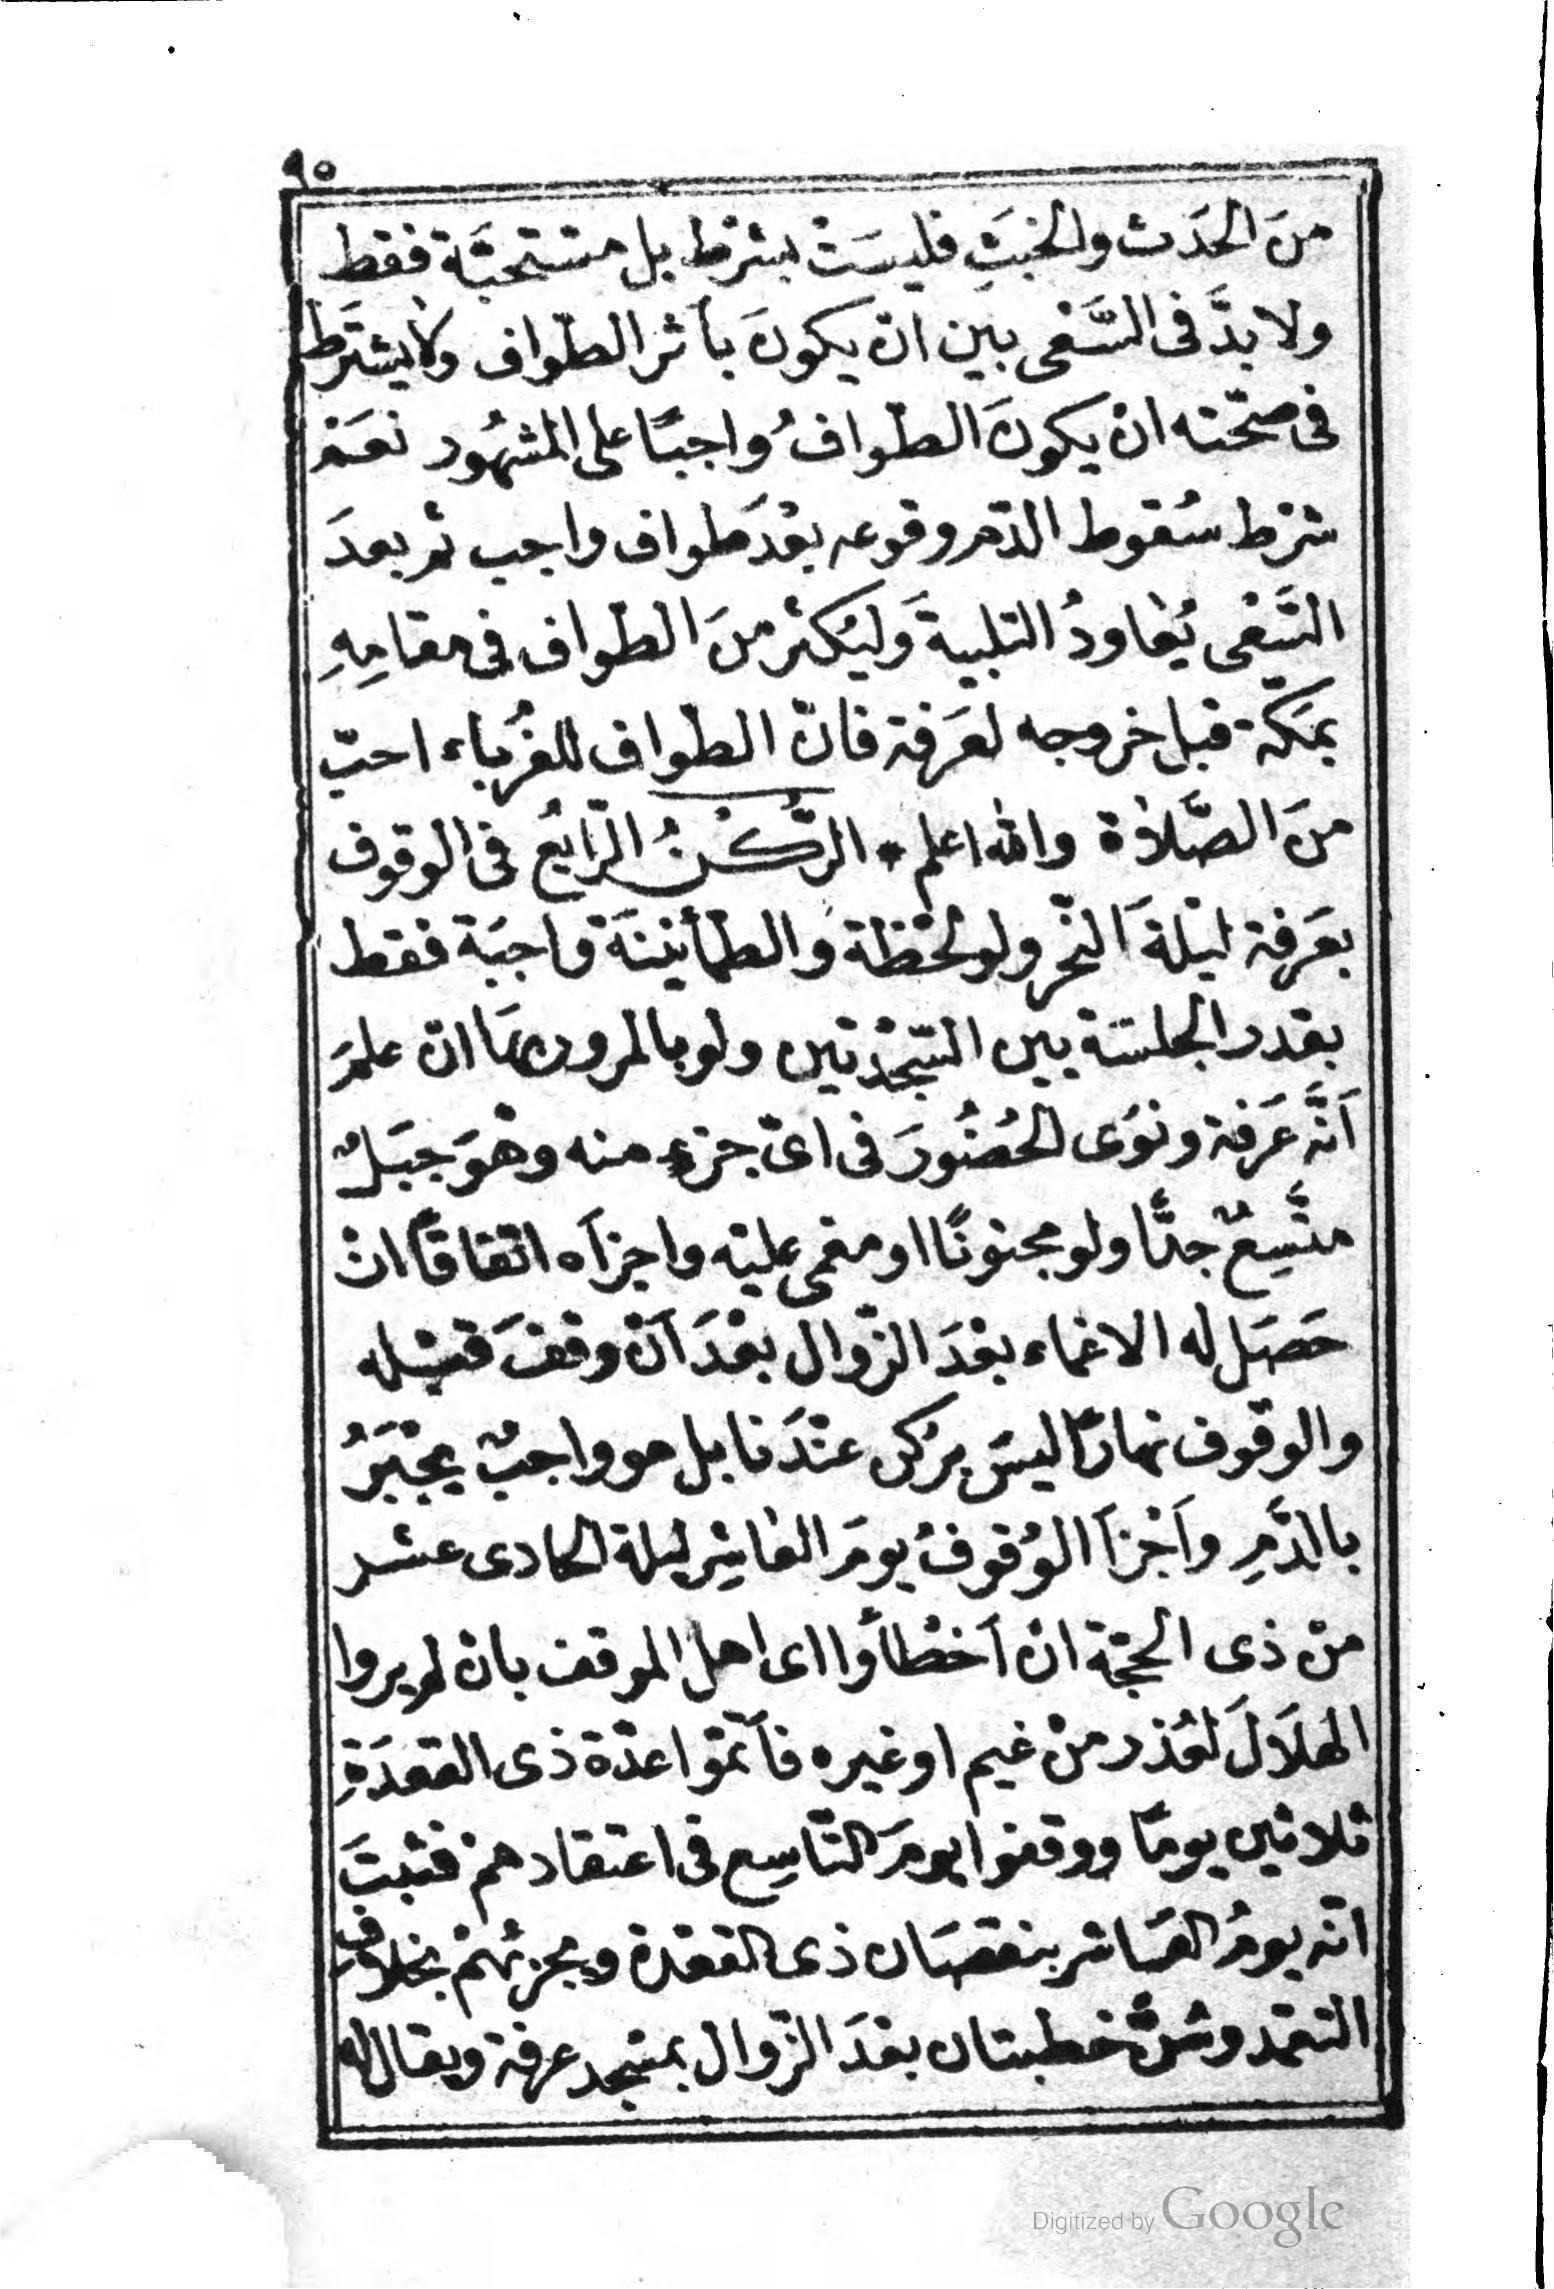 ٩٥
منَ الحدَث والخبثِ فليسَتْ بشرْط بل مستحبَّة فقط
ولا بدَّ فى السَّعْى بين انْ يكونَ باَثر الطّواف ولا يشترَط
فى صحّته انْ يكونَ الطّوافُ واجبًا على المشهُور نعَمْ
شرْط سُقوط الدّم وقوعه بعْدَ طواف واجب ثم بعدَ
السَّعْى يُعاودُ التلبيةَ وليُكثرْ منَ الطّواف فى مقامِهِ
بمكّة قبل خروجه لعَرفة فانّ الطّواف للغُرباء احبّ
منَ الصَّلاة والله اعلم * الرُّكْنُ الرّابعُ فى الوقوف
بعَرفة ليْلةَ النّحر ولو لحْظة والطمأنينَة واجبَة فقط
بقدر الجلسَة بين السّجْدتين ولو بالمرور بهَا انْ علمَ
اَنَّه عَرفة ونوَى الحُضُورَ فى اىّ جزءٍ منه وهْوَ جبَلٌ
متَّسِعٌ جدًّا ولو مجنونًا او مغمى عليْه واجزأه اتّفاقًا انْ
حَصَل له الاغماء بعْدَ الزّوال بعْدَ اَنْ وقفَ قبْله
والوقوف نهارًا ليسَ بركن عنْدَنا بل هو واجبٌ يجْبَرُ
بالدَّمِ واَجْزأ الوُقوفُ يومَ العاشِر ليلة الحادى عشر
منْ ذى الحجّة انْ اَخْطأوا اى اهل الموقف بانْ لم يروا
الهلاَلَ لعُذر منْ غيم او غيره فاَتمّوا عدّة ذى القعْدَةِ
ثلاثين يومًا ووقفوا يومَ التّاسِع فى اعتقادهمْ فثبتَ
انّه يومُ العَاشر بنقصَان ذى القعْدة ويجزئهمْ بخلافِ
التعمّد وسُنَّ خطبتان بعْدَ الزّوال بمسْجد عرفة ويقال له
Digitized by Google